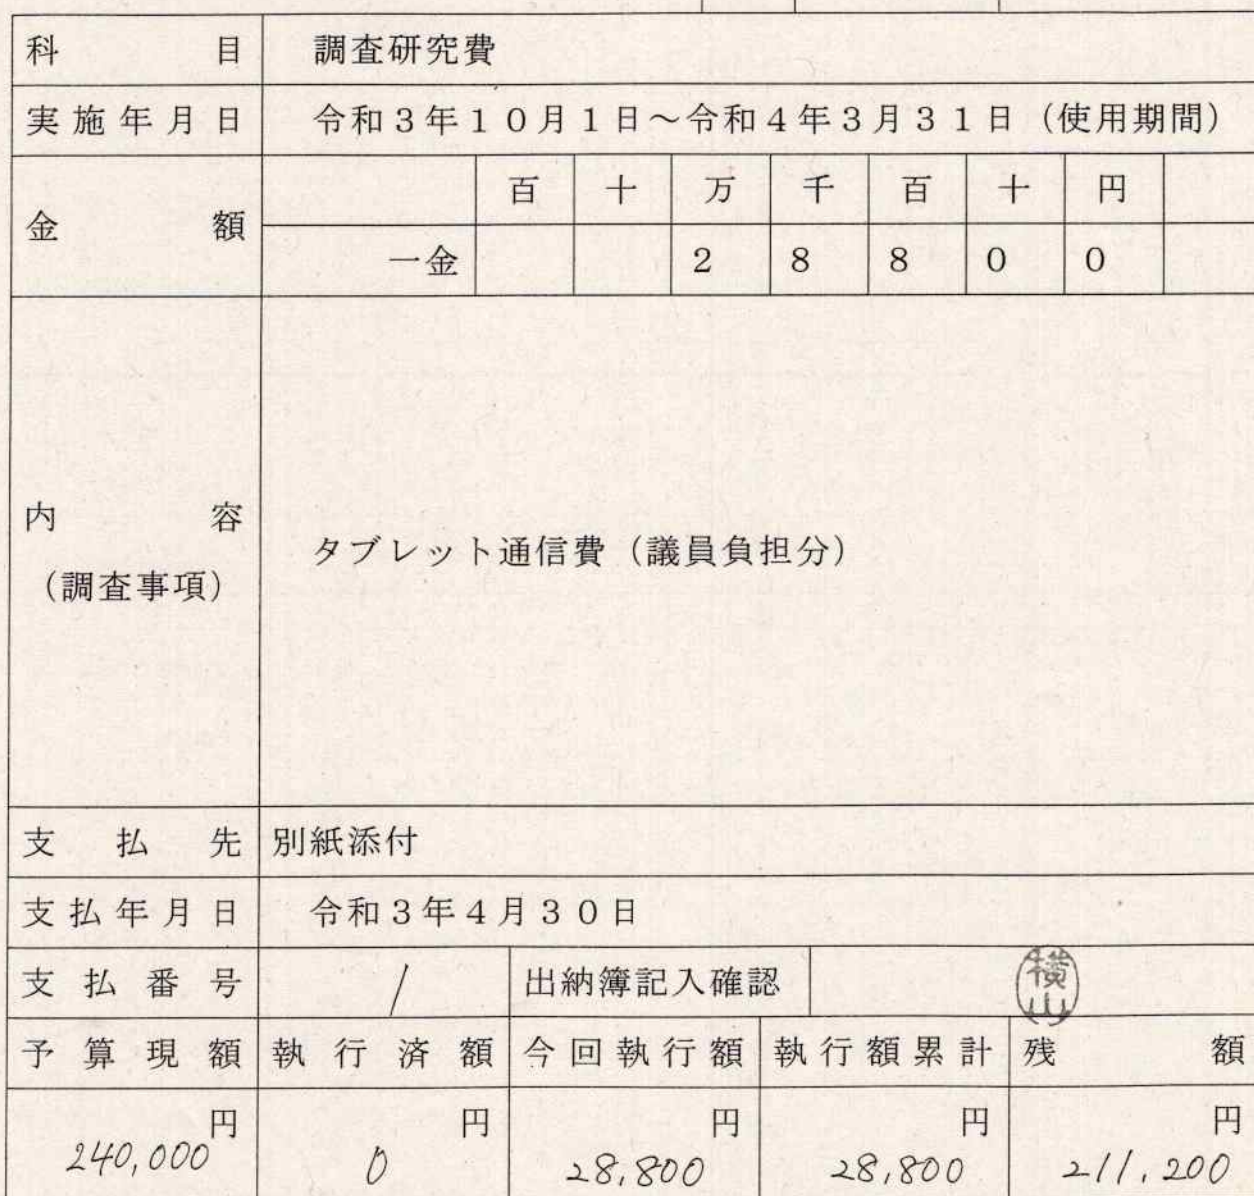 科目 調査研究費
実施年月日 令和3年10月1日～令和4年3月31日（使用期間）
金額 百 十 万 千 百 十 円
一金 2 8 8 0 0
内容
（調査事項）
タブレット通信費（議員負担分）
支払先 別紙添付
支払年月日 令和3年4月30日
支払番号 1 出納簿記入確認 横山
予算現額 執行済額 今回執行額 執行額累計 残額
円 円 円 円 円
240,000 0 28,800 28,800 211,200